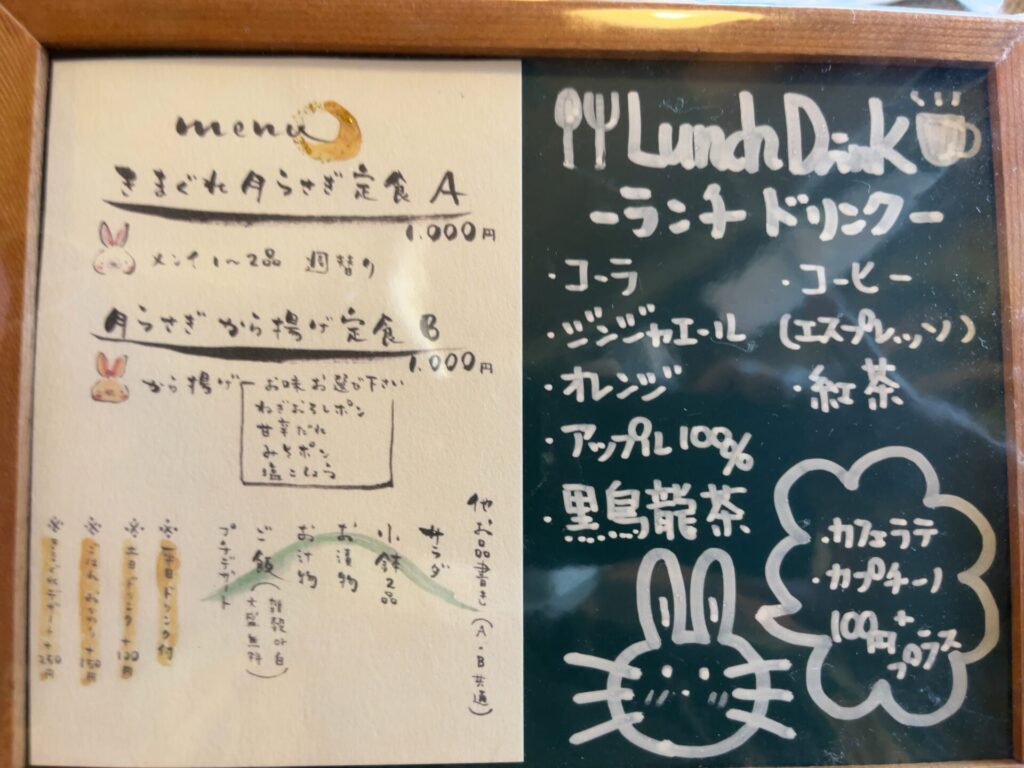 menu
きまぐれ月うさぎ定食 A
1.000円
メイン1〜2品 週替り
月うさぎ から揚げ定食 B
1.000円
から揚げ ー お味お選び下さい
ねぎおろしポン
甘辛だれ
みそポン
塩こしょう
他お品書き(A・B共通)
サラダ
小鉢2品
お漬物
お汁物
ご飯(雑穀or白)
大盛無料
プチデザート
※平日ドリンク付
Lunch Drink
ーランチ ドリンクー
・コーラ
・ジンジャエール
・オレンジ
・アップル100%
・黒烏龍茶
・コーヒー
(エスプレッソ)
・紅茶
・カフェラテ
・カプチーノ
+
100円
プラス